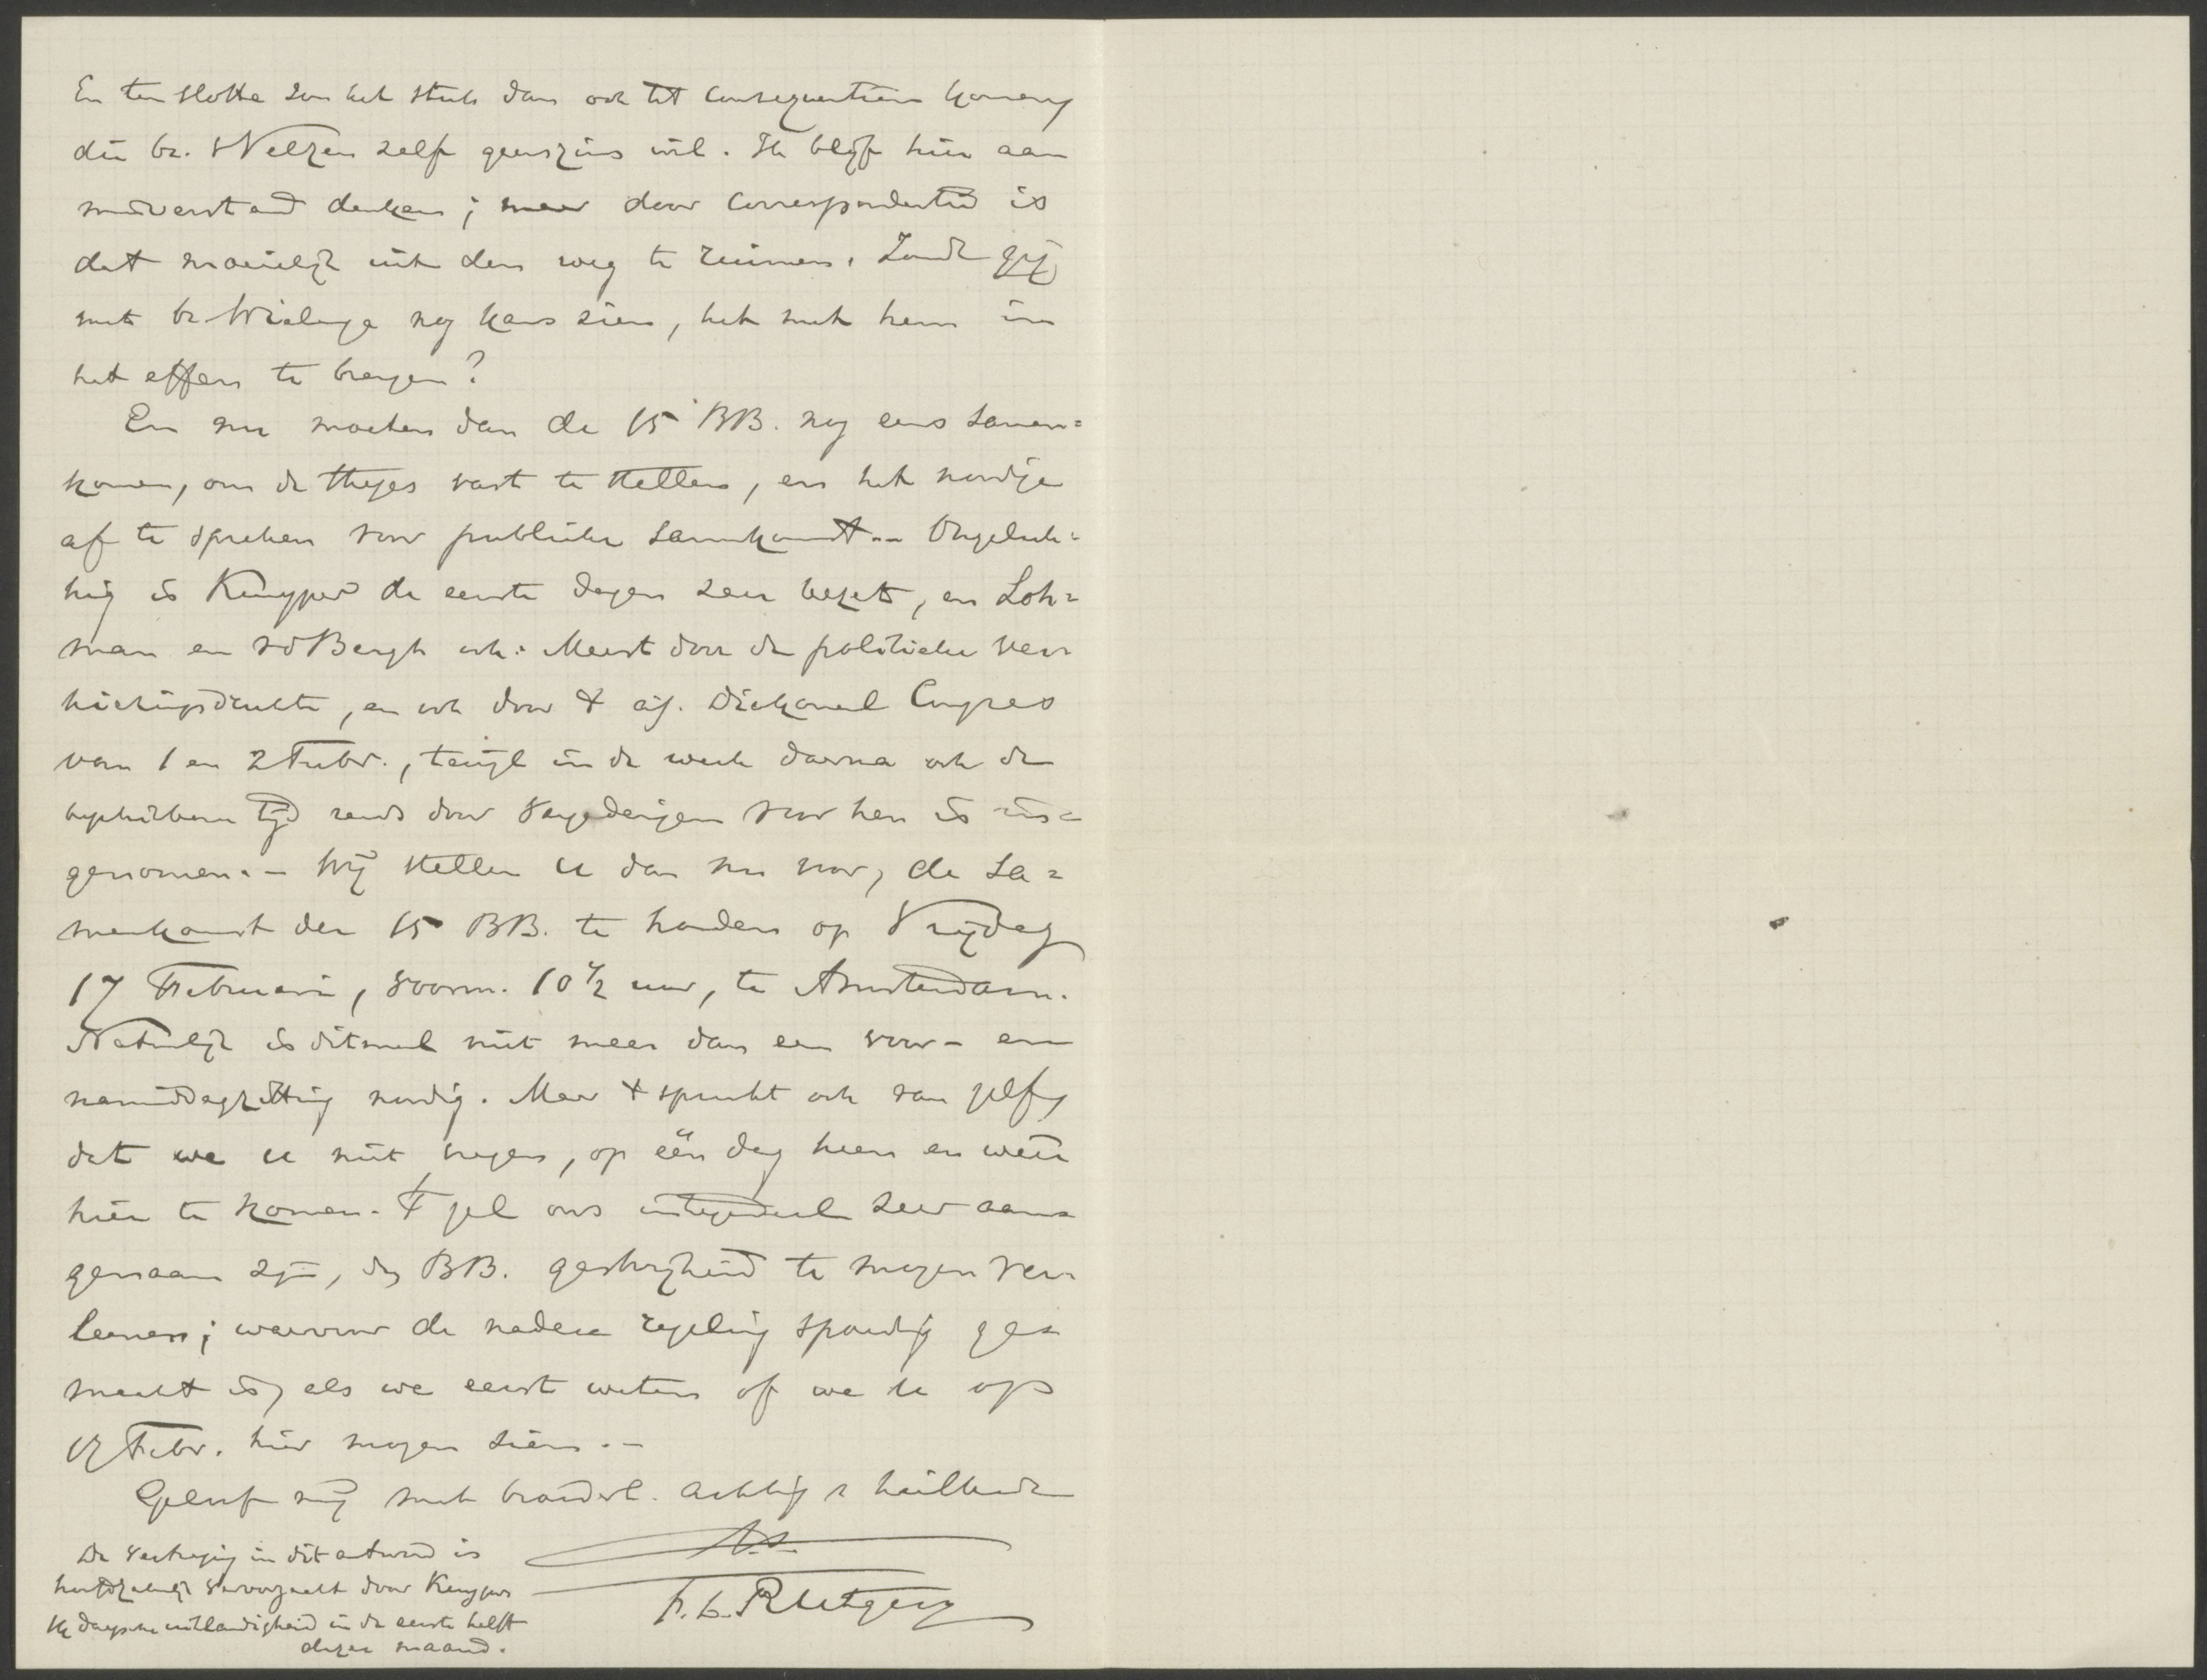 En ten slotte zou het stuk dan ook tot consequentiën komen,
die br. Velzen zelf geenszins wil. Ik blijf hier aan
misverstand denken; maar door correspondentie is
dat moeielijk uit den weg te ruimen. Zoudt gij
met br. Wielenga nog kans zien, het met hem in
het effen te brengen?
En nu moeten dan de 15 BB. nog eens samen=
komen, om de theses vast te stellen, en het noodige
af te spreken voor publieke samenkomst.– Ongeluk=
kig is Kuyper de eerste dagen zeer bezet, en Loh=
man en vd Bergh ook. Meest door de politieke ver=
kiezingsdrukte, en ook door 't Diakonaal Congres
van 1 en 2 Febr., terwijl in de week daarna ook de
beschikbare tijd reeds door vergaderingen voor hen is in=
genomen.– Wij stellen u dan nu voor, de sa=
menkomst der 15 BB. te houden op Vrijdag
17 Februari, voorm. 10½ uur, te Amsterdam.
Natuurlijk is ditmaal niet meer dan een voor- en
namiddagzitting noodig. Maar 't spreekt ook van zelf,
dat we u niet vragen, op één dag heen en weer
hier te komen. 't Zal ons integendeel zeer aan=
genaam zijn, de BB. gastvrijheid te mogen ver=
leenen; waarvoor de nadere regeling spoedig ge=
maakt is, als we eerst weten of we u op
17 Febr. hier mogen zien.–
Geloof mij met broederl. achting & heilbede
De vertraging in dit antwoord is
hoofdzakelijk veroorzaakt door Kuypers
daagsche uitlandigheid in de eerste helft
dezer maand.
t.t.
F. L. Rutgers